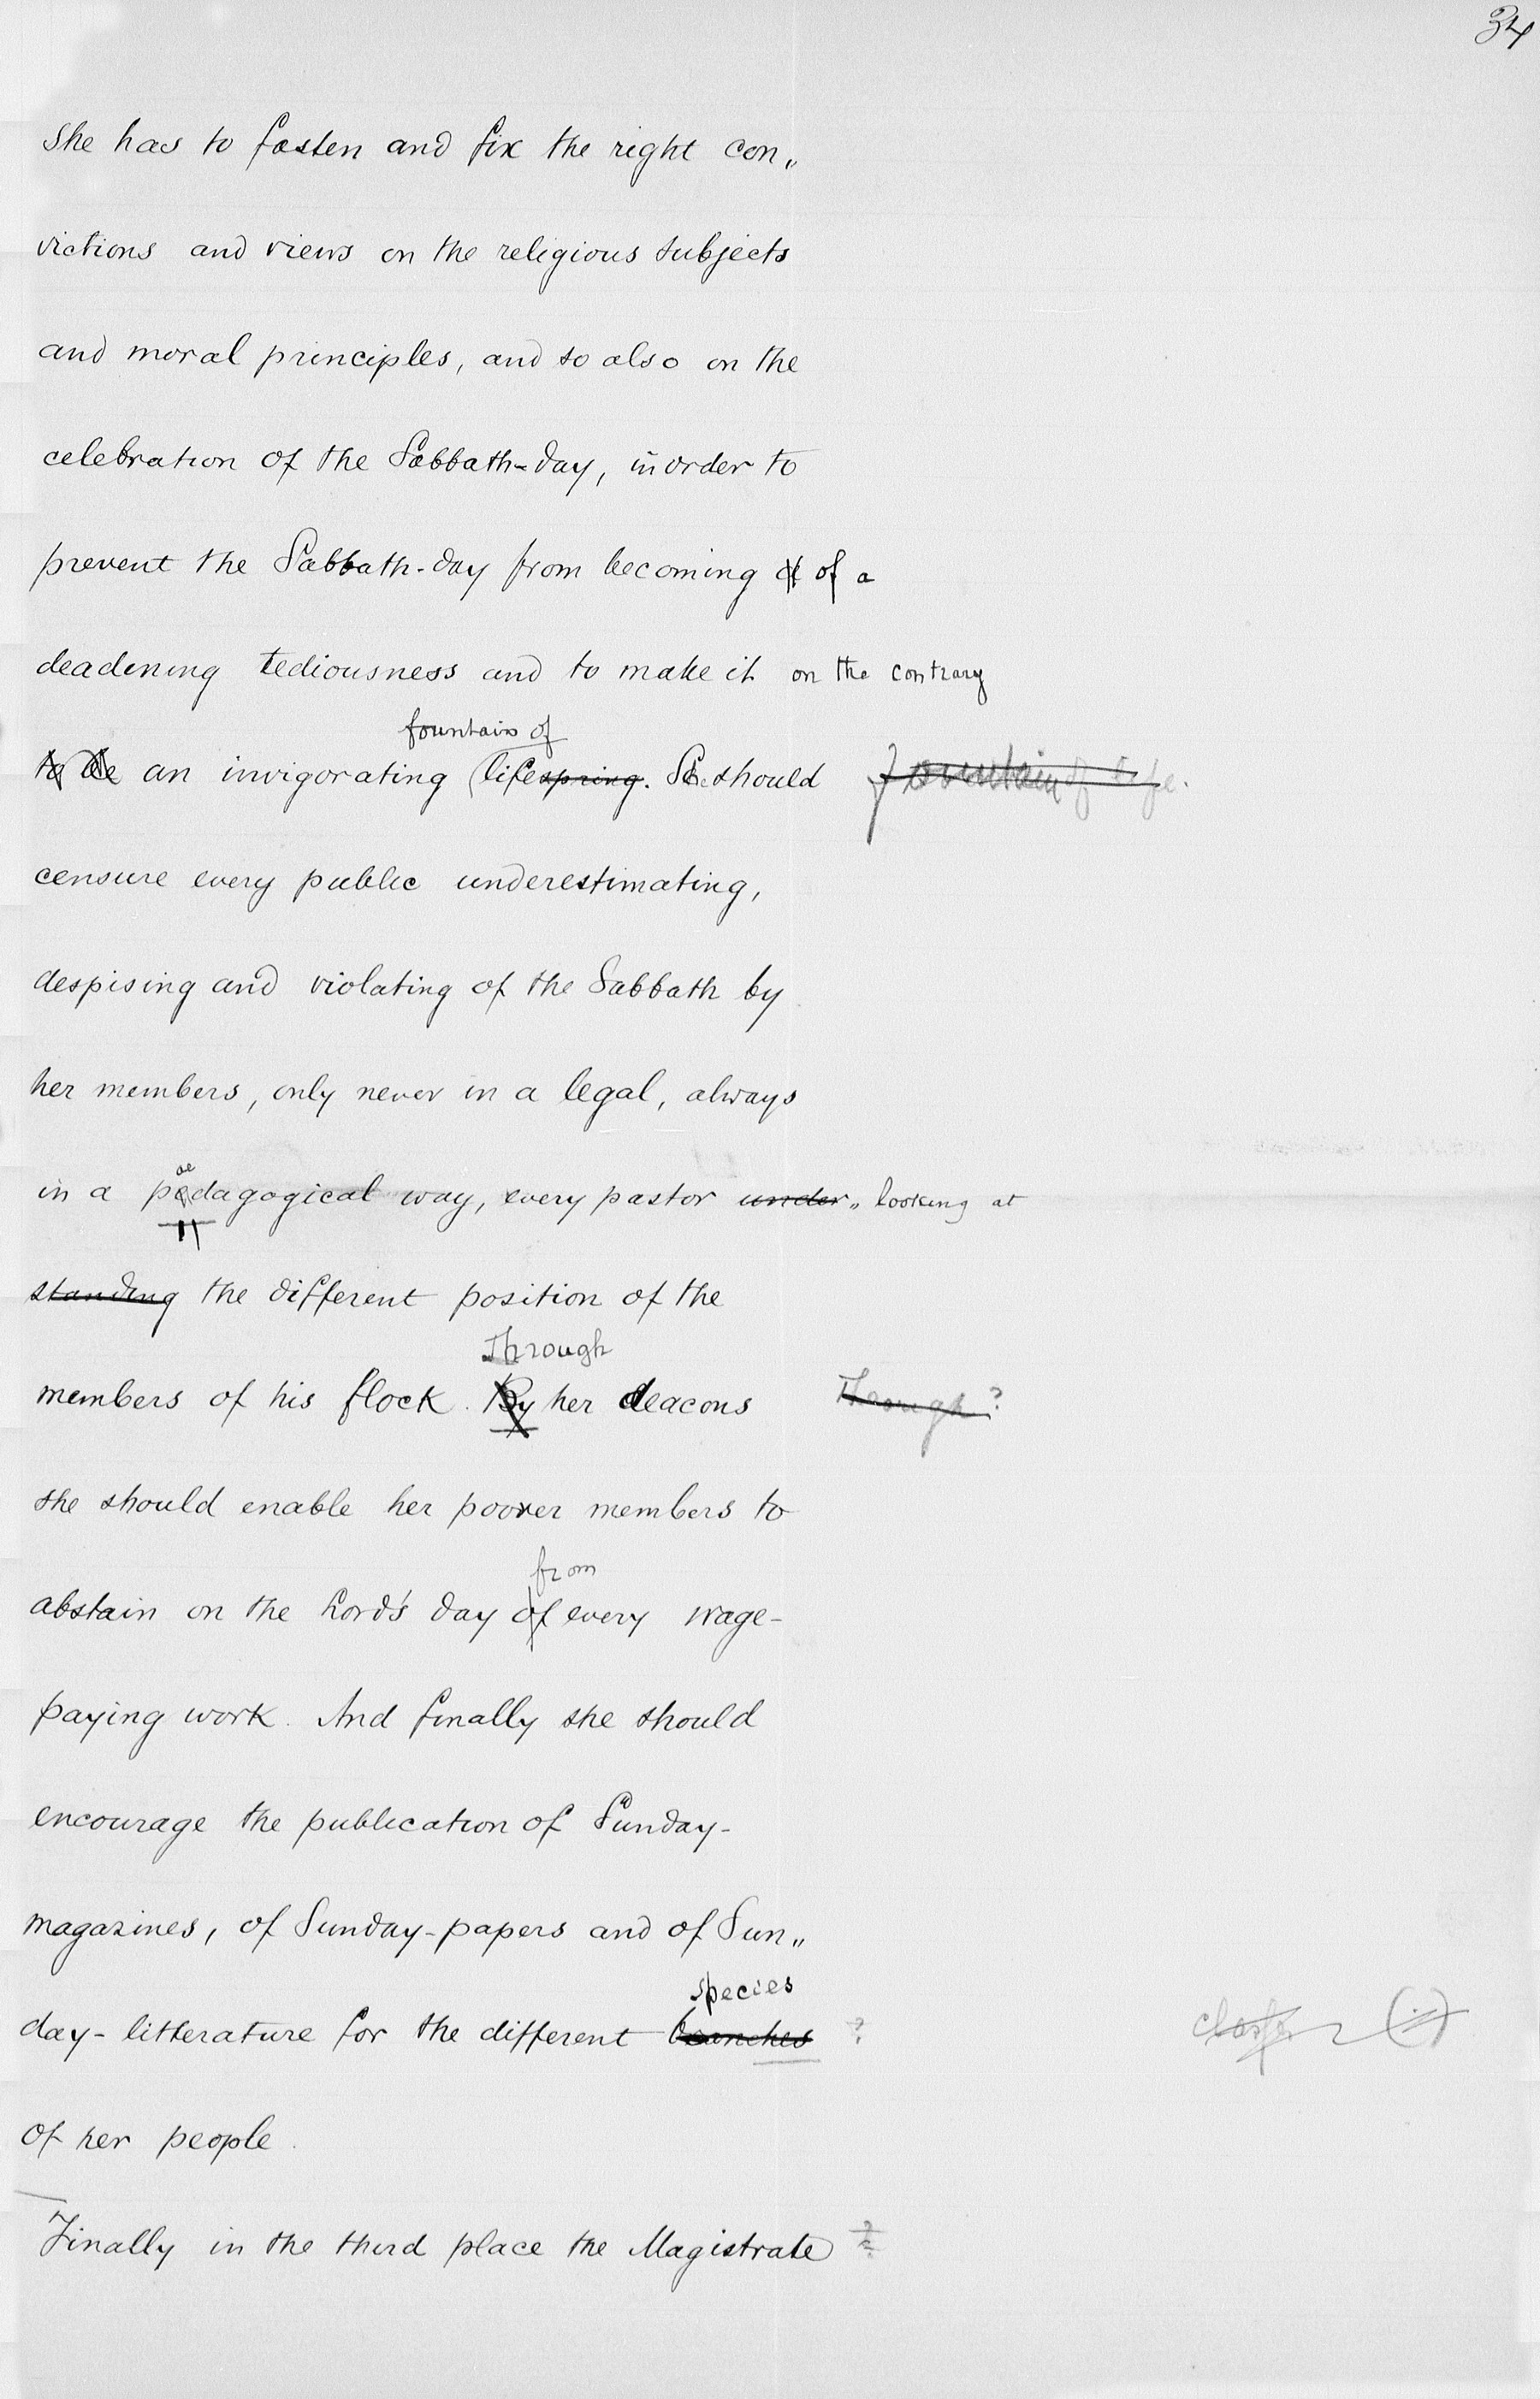 34
She has to fasten and fix the right con„
victions and views on the religious subjects
and moral principles, and so also on the
celebration of the Sabbath-day, in order to
prevent the Sabbath-day from becoming of of a
deadening tediousness and to make it on the contrary
fountain of
to be an invigorating lifespring. She should fountain of life.
censure every public underestimating,
despising and violating of the Sabbath by
her members, only never in a legal, always
ae
in a pedagogical way, every pastor under„ looking at
standing the different position of the
Through
members of his flock. By her deacons Through?
she should enable her poorer members to
from
abstain on the Lord's day of every wage-
paying work. And finally she should
encourage the publication of Sunday-
magazines, of Sunday-papers and of Sun„
species
day-litterature for the different branches ?
of her people.
Finally in the third place the Magistrate ?